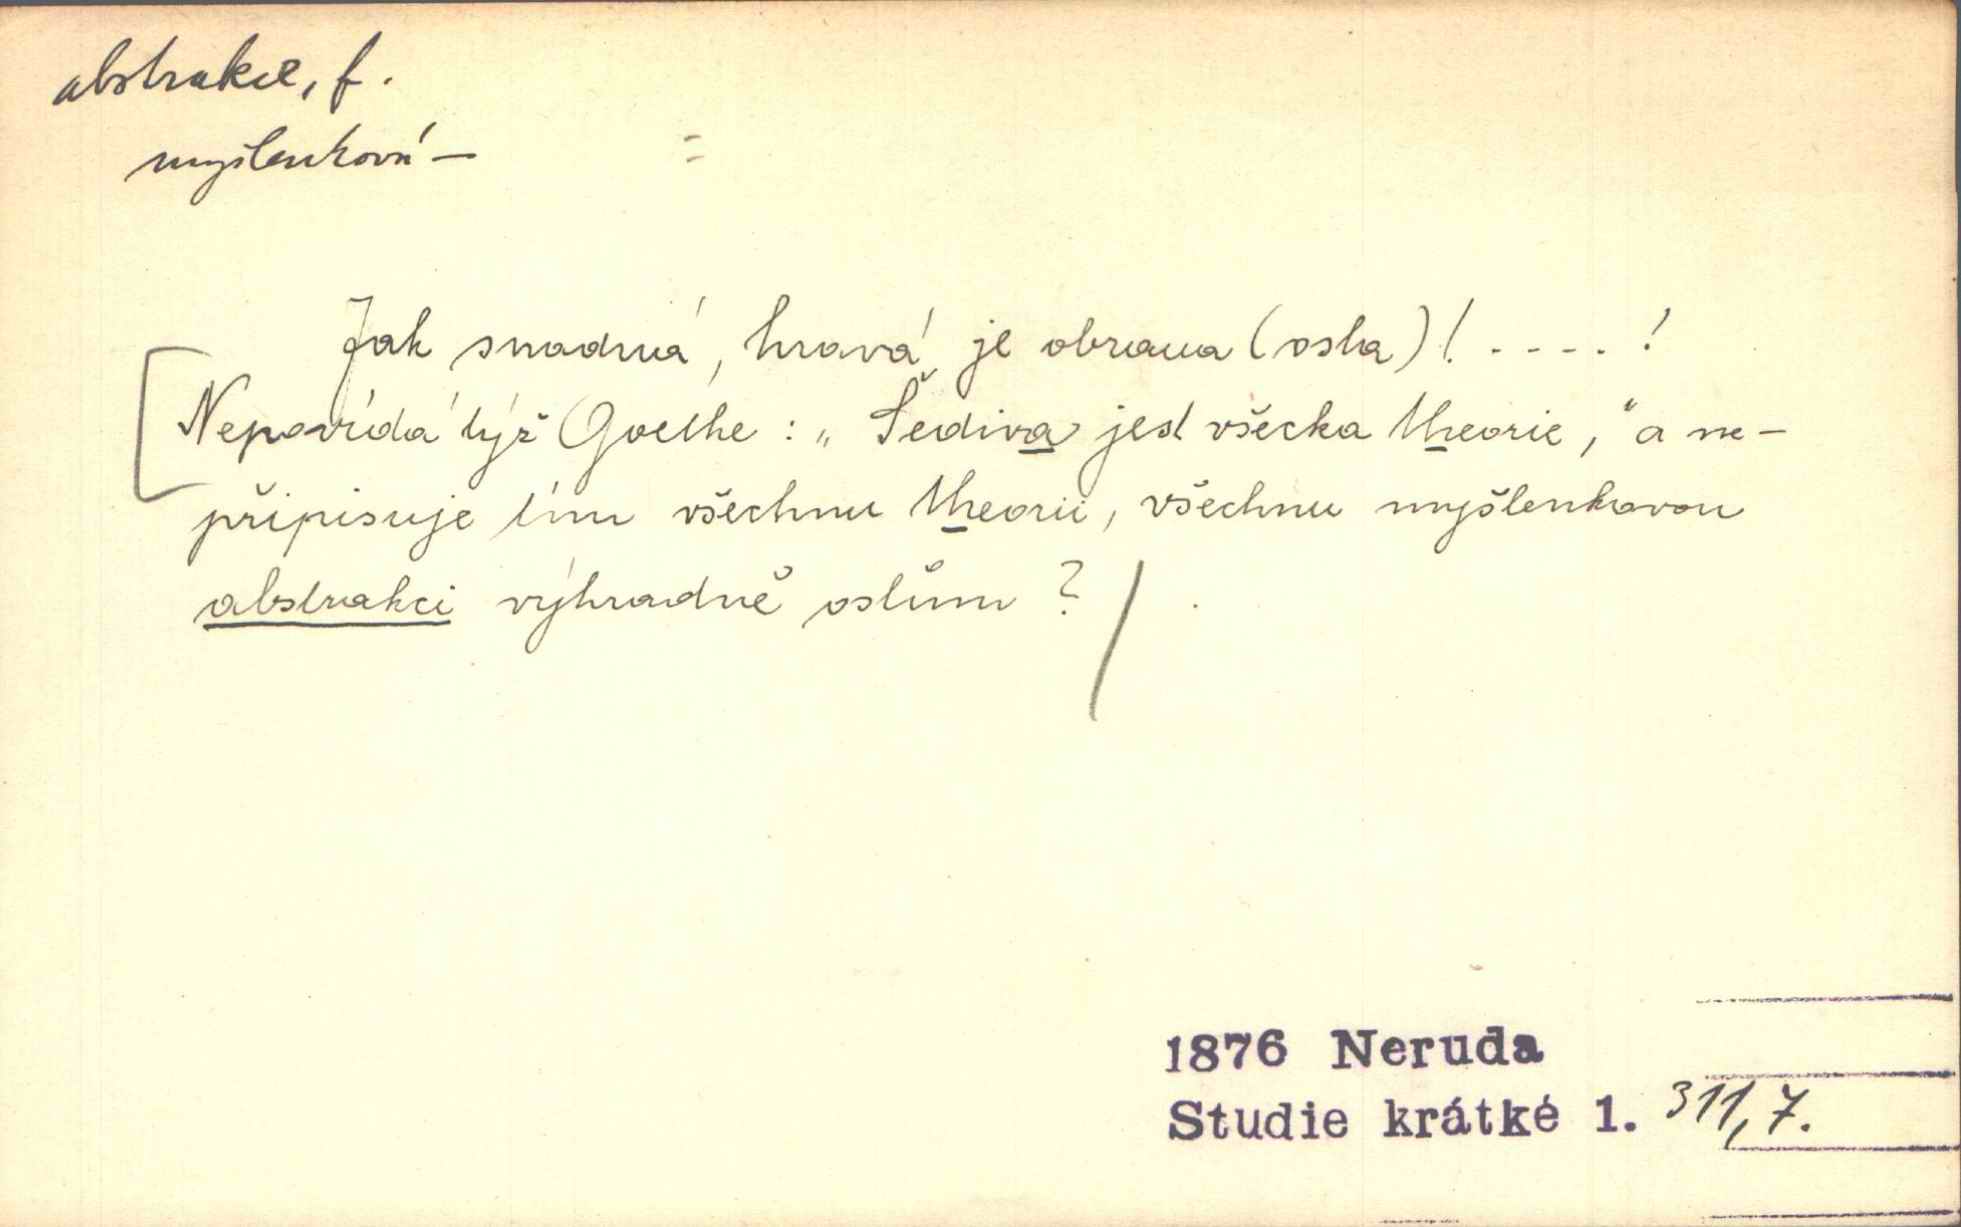 abstrakce, f.
myšlenková —
=
Jak snadná, hravá je obrana (osla)! - - - - !
[Nepovídá týž Goethe: „Šediva jest všecka theorie,“ a ne-
připisuje tím všechnu theorii, všechnu myšlenkovou
abstrakci výhradně oslům? /
1876 Neruda
Studie krátké 1. 311,7.